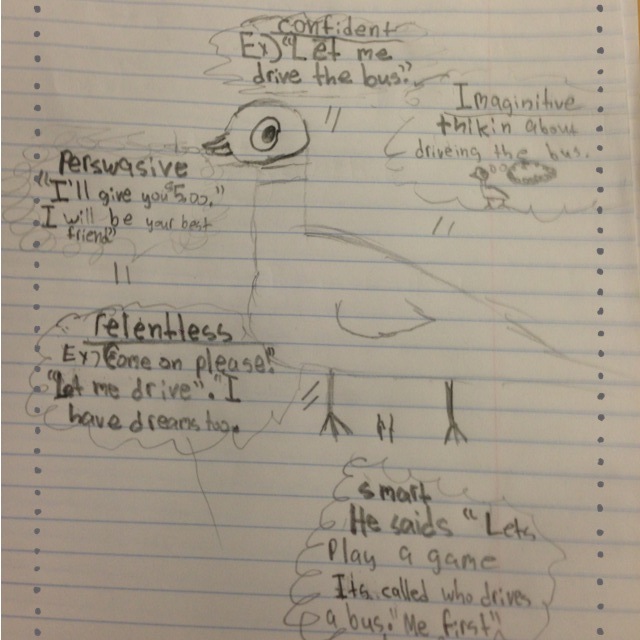 Confident
Ex) "Let me
drive the bus."
Imaginitive
thikin about
driveing the bus.
Perswasive
"I'll give you $5.00."
I will be your best
friend"
relentless
Ex) "Come on please!"
"Let me drive". "I
have dreams too.
smart
He saids "Lets
Play a game
Its called who drives
a bus." Me first"